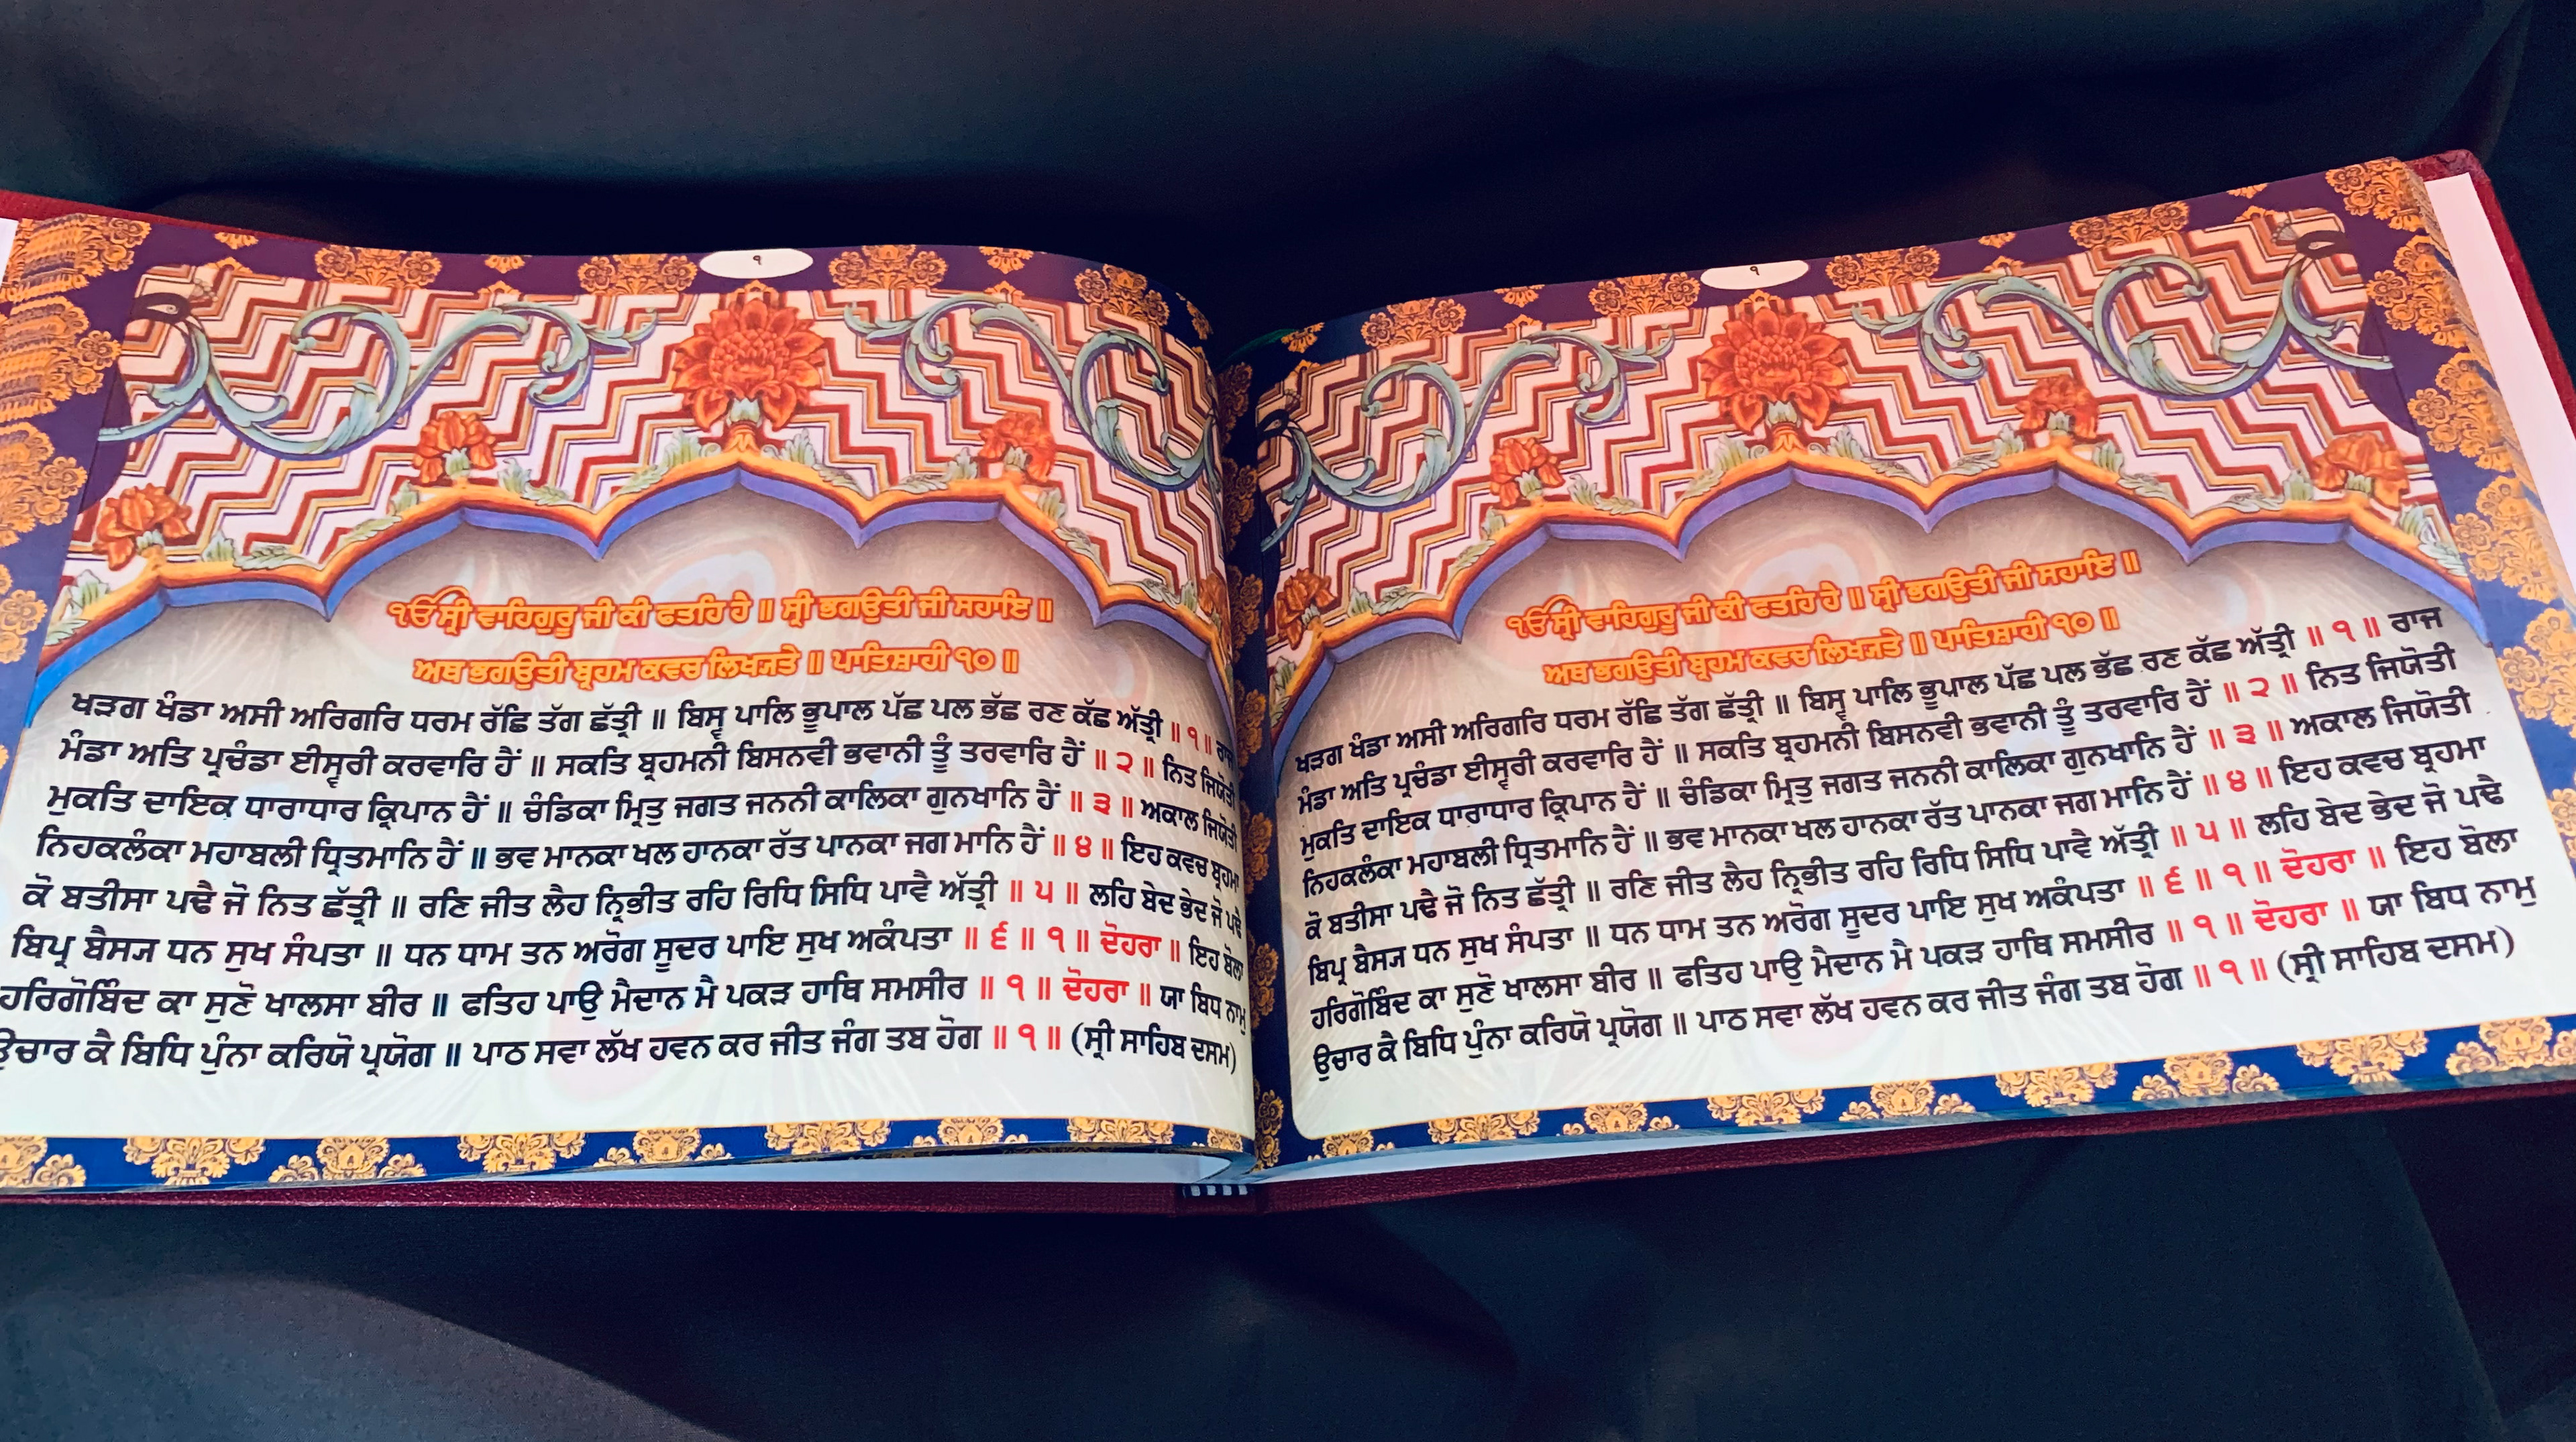 ੧
ੴ ਸ੍ਰੀ ਵਾਹਿਗੁਰੂ ਜੀ ਕੀ ਫਤਹਿ ਹੈ ॥ ਸ੍ਰੀ ਭਗਉਤੀ ਜੀ ਸਹਾਇ ॥
ਅਥ ਭਗਉਤੀ ਬ੍ਰਹਮ ਕਵਚ ਲਿਖਯਤੇ ॥ ਪਾਤਿਸ਼ਾਹੀ ੧੦ ॥
ਖੜਗ ਖੰਡਾ ਅਸੀ ਅਰਿਗਰਿ ਧਰਮ ਰੱਛਿ ਤੱਗ ਛੱਤ੍ਰੀ ॥ ਬਿਸ੍ਵ ਪਾਲਿ ਭੂਪਾਲ ਪੱਛ ਪਲ ਭੱਛ ਰਣ ਕੱਛ ਅੱਤ੍ਰੀ ॥ ੧ ॥ ਰਾਜ
ਮੰਡਾ ਅਤਿ ਪ੍ਰਚੰਡਾ ਈਸ੍ਵਰੀ ਕਰਵਾਰਿ ਹੈਂ ॥ ਸਕਤਿ ਬ੍ਰਹਮਨੀ ਬਿਸਨਵੀ ਭਵਾਨੀ ਤੂੰ ਤਰਵਾਰਿ ਹੈਂ ॥ ੨ ॥ ਨਿਤ ਜਿਯੋਤੀ
ਮੁਕਤਿ ਦਾਇਕ ਧਾਰਾਧਾਰ ਕ੍ਰਿਪਾਨ ਹੈਂ ॥ ਚੰਡਿਕਾ ਮ੍ਰਿਤੁ ਜਗਤ ਜਨਨੀ ਕਾਲਿਕਾ ਗੁਨਖਾਨਿ ਹੈਂ ॥ ੩ ॥ ਅਕਾਲ ਜਿਯੋਤੀ
ਨਿਹਕਲੰਕਾ ਮਹਾਬਲੀ ਧ੍ਰਿਤਮਾਨਿ ਹੈਂ ॥ ਭਵ ਮਾਨਕਾ ਖਲ ਹਾਨਕਾ ਰੱਤ ਪਾਨਕਾ ਜਗ ਮਾਨਿ ਹੈਂ ॥ ੪ ॥ ਇਹ ਕਵਚ ਬ੍ਰਹਮਾ
ਕੋ ਬਤੀਸਾ ਪਢੈ ਜੋ ਨਿਤ ਛੱਤ੍ਰੀ ॥ ਰਣਿ ਜੀਤ ਲੈਹ ਨ੍ਰਿਭੀਤ ਰਹਿ ਰਿਧਿ ਸਿਧਿ ਪਾਵੈ ਅੱਤ੍ਰੀ ॥ ੫ ॥ ਲਹਿ ਬੇਦ ਭੇਦ ਜੋ ਪਢੈ
ਬਿਪ੍ਰ ਬੈਸਯ ਧਨ ਸੁਖ ਸੰਪਤਾ ॥ ਧਨ ਧਾਮ ਤਨ ਅਰੋਗ ਸੂਦਰ ਪਾਇ ਸੁਖ ਅਕੰਪਤਾ ॥ ੬ ॥ ੧ ॥ ਦੋਹਰਾ ॥ ਇਹ ਬੋਲਾ
ਹਰਿਗੋਬਿੰਦ ਕਾ ਸੁਣੋ ਖਾਲਸਾ ਬੀਰ ॥ ਫਤਿਹ ਪਾਉ ਮੈਦਾਨ ਮੈ ਪਕੜ ਹਾਥਿ ਸਮਸੀਰ ॥ ੧ ॥ ਦੋਹਰਾ ॥ ਯਾ ਬਿਧ ਨਾਮੁ
ਉਚਾਰ ਕੈ ਬਿਧਿ ਪੁੰਨਾ ਕਰਿਯੋ ਪ੍ਰਯੋਗ ॥ ਪਾਠ ਸਵਾ ਲੱਖ ਹਵਨ ਕਰ ਜੀਤ ਜੰਗ ਤਬ ਹੋਗ ॥ ੧ ॥ (ਸ੍ਰੀ ਸਾਹਿਬ ਦਸਮ)
੧
ੴ ਸ੍ਰੀ ਵਾਹਿਗੁਰੂ ਜੀ ਕੀ ਫਤਹਿ ਹੈ ॥ ਸ੍ਰੀ ਭਗਉਤੀ ਜੀ ਸਹਾਇ ॥
ਅਥ ਭਗਉਤੀ ਬ੍ਰਹਮ ਕਵਚ ਲਿਖਯਤੇ ॥ ਪਾਤਿਸ਼ਾਹੀ ੧੦ ॥
ਖੜਗ ਖੰਡਾ ਅਸੀ ਅਰਿਗਰਿ ਧਰਮ ਰੱਛਿ ਤੱਗ ਛੱਤ੍ਰੀ ॥ ਬਿਸ੍ਵ ਪਾਲਿ ਭੂਪਾਲ ਪੱਛ ਪਲ ਭੱਛ ਰਣ ਕੱਛ ਅੱਤ੍ਰੀ ॥ ੧ ॥ ਰਾਜ
ਮੰਡਾ ਅਤਿ ਪ੍ਰਚੰਡਾ ਈਸ੍ਵਰੀ ਕਰਵਾਰਿ ਹੈਂ ॥ ਸਕਤਿ ਬ੍ਰਹਮਨੀ ਬਿਸਨਵੀ ਭਵਾਨੀ ਤੂੰ ਤਰਵਾਰਿ ਹੈਂ ॥ ੨ ॥ ਨਿਤ ਜਿਯੋਤੀ
ਮੁਕਤਿ ਦਾਇਕ ਧਾਰਾਧਾਰ ਕ੍ਰਿਪਾਨ ਹੈਂ ॥ ਚੰਡਿਕਾ ਮ੍ਰਿਤੁ ਜਗਤ ਜਨਨੀ ਕਾਲਿਕਾ ਗੁਨਖਾਨਿ ਹੈਂ ॥ ੩ ॥ ਅਕਾਲ ਜਿਯੋਤੀ
ਨਿਹਕਲੰਕਾ ਮਹਾਬਲੀ ਧ੍ਰਿਤਮਾਨਿ ਹੈਂ ॥ ਭਵ ਮਾਨਕਾ ਖਲ ਹਾਨਕਾ ਰੱਤ ਪਾਨਕਾ ਜਗ ਮਾਨਿ ਹੈਂ ॥ ੪ ॥ ਇਹ ਕਵਚ ਬ੍ਰਹਮਾ
ਕੋ ਬਤੀਸਾ ਪਢੈ ਜੋ ਨਿਤ ਛੱਤ੍ਰੀ ॥ ਰਣਿ ਜੀਤ ਲੈਹ ਨ੍ਰਿਭੀਤ ਰਹਿ ਰਿਧਿ ਸਿਧਿ ਪਾਵੈ ਅੱਤ੍ਰੀ ॥ ੫ ॥ ਲਹਿ ਬੇਦ ਭੇਦ ਜੋ ਪਢੈ
ਬਿਪ੍ਰ ਬੈਸਯ ਧਨ ਸੁਖ ਸੰਪਤਾ ॥ ਧਨ ਧਾਮ ਤਨ ਅਰੋਗ ਸੂਦਰ ਪਾਇ ਸੁਖ ਅਕੰਪਤਾ ॥ ੬ ॥ ੧ ॥ ਦੋਹਰਾ ॥ ਇਹ ਬੋਲਾ
ਹਰਿਗੋਬਿੰਦ ਕਾ ਸੁਣੋ ਖਾਲਸਾ ਬੀਰ ॥ ਫਤਿਹ ਪਾਉ ਮੈਦਾਨ ਮੈ ਪਕੜ ਹਾਥਿ ਸਮਸੀਰ ॥ ੧ ॥ ਦੋਹਰਾ ॥ ਯਾ ਬਿਧ ਨਾਮੁ
ਉਚਾਰ ਕੈ ਬਿਧਿ ਪੁੰਨਾ ਕਰਿਯੋ ਪ੍ਰਯੋਗ ॥ ਪਾਠ ਸਵਾ ਲੱਖ ਹਵਨ ਕਰ ਜੀਤ ਜੰਗ ਤਬ ਹੋਗ ॥ ੧ ॥ (ਸ੍ਰੀ ਸਾਹਿਬ ਦਸਮ)